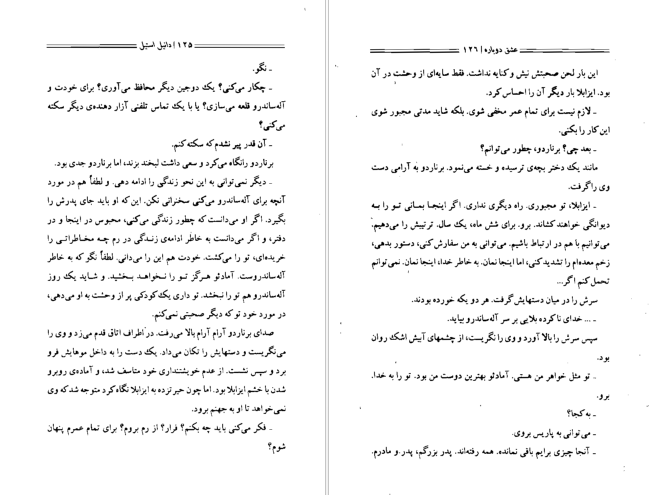 ۱۲۵ | دانیل استیل
ـ نگو.
ـ چکار می‌کنی؟ یک دوجین دیگر محافظ می‌آوری؟ برای خودت و
آله‌ساندرو قلعه می‌سازی؟ یا با یک تماس تلفنی آزار دهنده‌ی دیگر سکته
می‌کنی؟
ـ آن قدر پیر نشدم که سکته کنم.
برناردو را نگاه می‌کرد و سعی داشت لبخند بزند، اما برناردو جدی بود.
ـ دیگر نمی‌توانی به این نحو زندگی را ادامه دهی. و لطفاً هم در مورد
آنچه برای آله‌ساندرو می‌کنی سخنرانی نکن. این که او باید جای پدرش را
بگیرد. اگر او می‌دانست که چطور زندگی می‌کنی، محبوس در اینجا و در
دفتر، و اگر می‌دانست به خاطر ادامه‌ی زندگی در رم چه مخاطراتی را
خریده‌ای، تو را می‌کشت. خودت هم این را می‌دانی. لطفاً نگو که به خاطر
آله‌ساندروست. آمادئو هرگز تو را نخواهد بخشید. و شاید یک روز
آله‌ساندرو هم تو را نبخشد. تو داری یک کودکی پر از وحشت به او می‌دهی،
در مورد خود تو که دیگر صحبتی نمی‌کنم.
صدای برناردو آرام آرام بالا می‌رفت. در اطراف اتاق قدم می‌زد و وی را
می‌نگریست و دستهایش را تکان می‌داد. یک دست را به داخل موهایش فرو
برد و سپس نشست. از عدم خویشتنداری خود متاسف شد، و آماده‌ی روبرو
شدن با خشم ایزابلا بود. اما چون حیرتزده به ایزابلا نگاه کرد متوجه شد که وی
نمی‌خواهد تا او به جهنم برود.
ـ فکر می‌کنی باید چه بکنم؟ فرار؟ از رم بروم؟ برای تمام عمرم پنهان
شوم؟
عشق دوباره | ۱۲۶
این بار لحن صحبتش نیش و کنایه نداشت. فقط سایه‌ای از وحشت در آن
بود. ایزابلا بار دیگر آن را احساس کرد.
ـ لازم نیست برای تمام عمر مخفی شوی. بلکه شاید مدتی مجبور شوی
این کار را بکنی.
ـ بعد چی؟ برناردو، چطور می‌توانم؟
مانند یک دختر بچه‌ی ترسیده و خسته می‌نمود. برناردو به آرامی دست
وی را گرفت.
ـ ایزابلا، تو مجبوری. راه دیگری نداری. اگر اینجا بمانی تو را به
دیوانگی خواهند کشاند. برو. برای شش ماه، یک سال. ترتیبش را می‌دهیم.
می‌توانیم با هم در ارتباط باشیم. می‌توانی به من سفارش کنی، دستور بدهی،
زخم معده‌ام را تشدید کنی، اما اینجا نمان. به خاطر خدا، اینجا نمان. نمی‌توانم
تحمل کنم اگر...
سرش را در میان دستهایش گرفت. هر دو یکه خورده بودند.
ـ ... خدای نا کرده بلایی بر سر آله‌ساندرو بیاید.
سپس سرش را بالا آورد و وی را نگریست، از چشمهای آبیش اشک روان
بود.
ـ تو مثل خواهر من هستی. آمادئو بهترین دوست من بود. تو را به خدا.
برو.
ـ به کجا؟
ـ می‌توانی به پاریس بروی.
ـ آنجا چیزی برایم باقی نمانده. همه رفته‌اند. پدر بزرگم، پدر و مادرم.